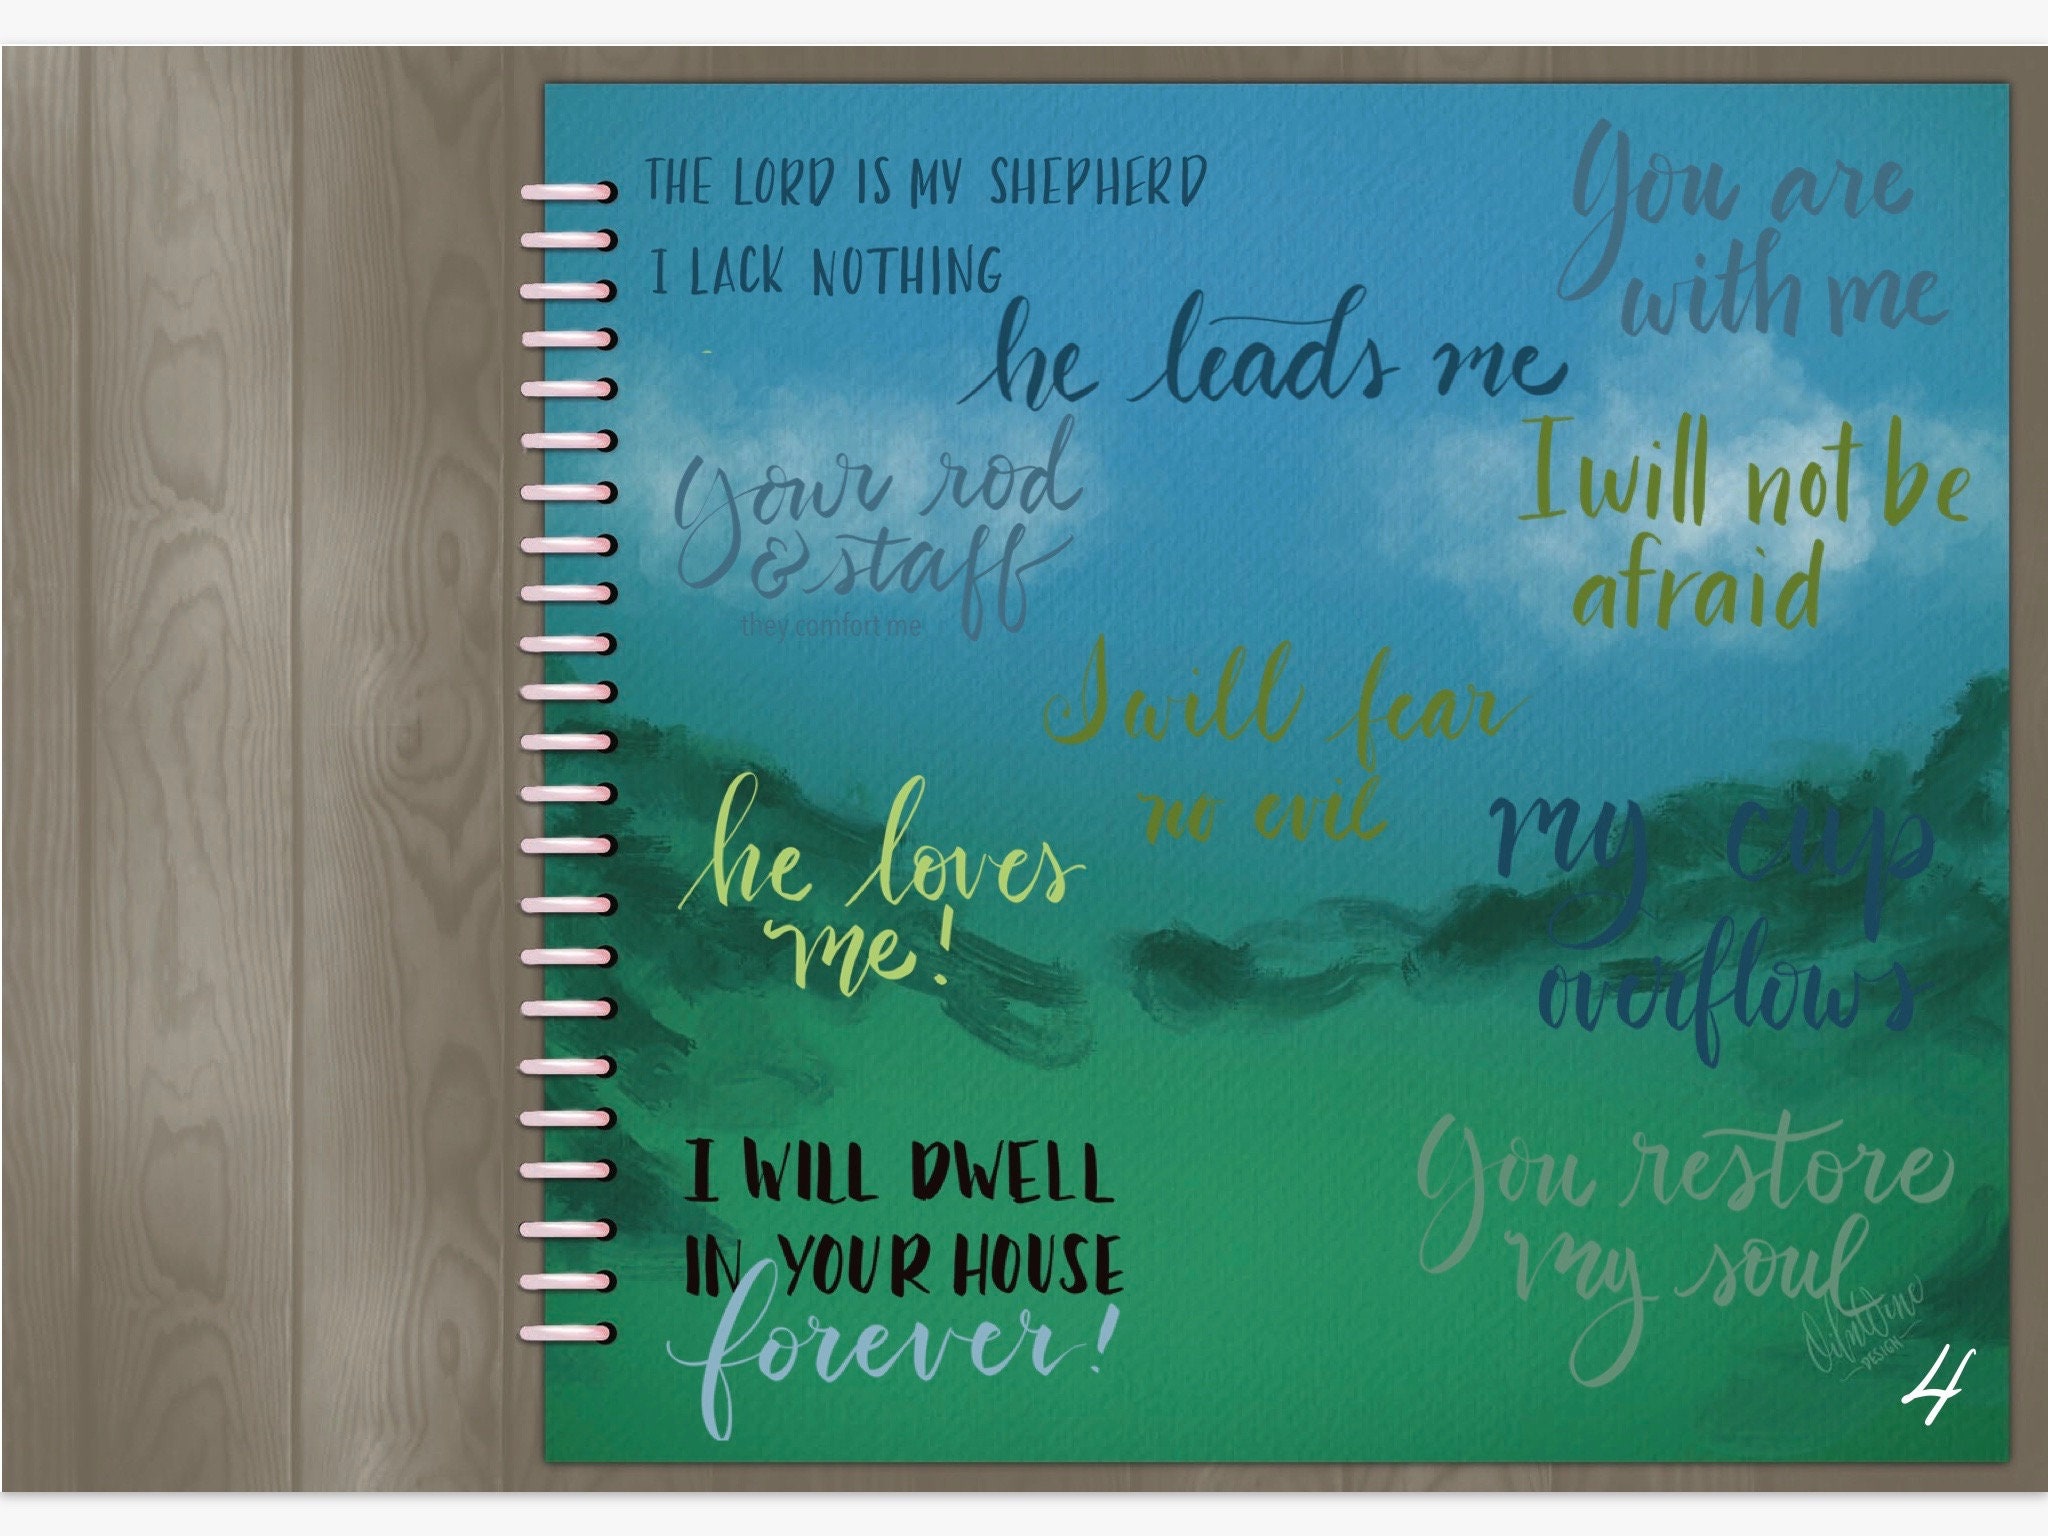 THE LORD IS MY SHEPHERD
I LACK NOTHING
he leads me
You are
with me
Your rod
& staff
they comfort me
I will not be
afraid
I will fear
no evil
he loves
me!
my cup
overflows
I WILL DWELL
IN YOUR HOUSE
forever!
You restore
my soul
DESIGN
4